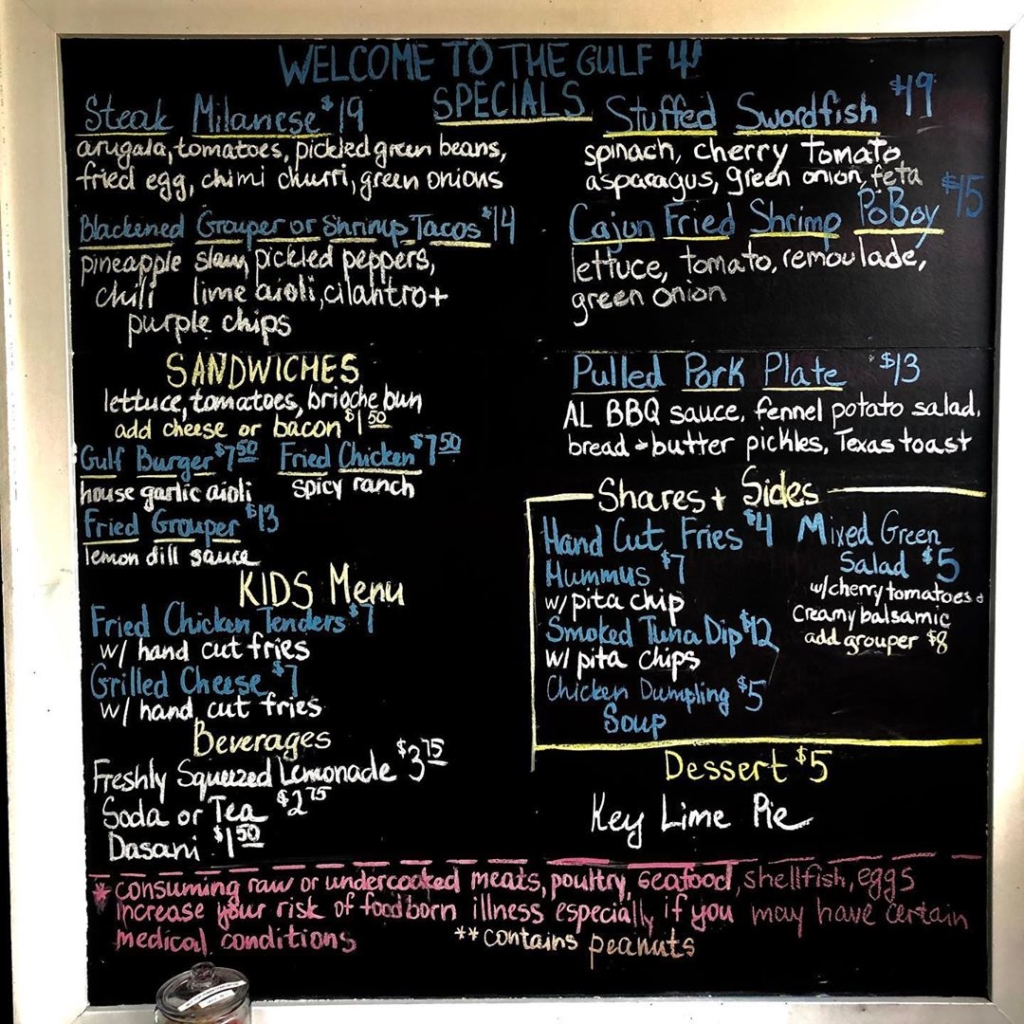 WELCOME TO THE GULF
SPECIALS
Steak Milanese $19
arugala, tomatoes, pickled green beans,
fried egg, chimi churri, green onions
Blackened Grouper or Shrimp Tacos $14
pineapple slaw, pickled peppers,
chili lime aioli, cilantro +
purple chips
Stuffed Swordfish $19
spinach, cherry tomato
asparagus, green onion, feta
Cajun Fried Shrimp PoBoy $15
lettuce, tomato, remoulade,
green onion
SANDWICHES
lettuce, tomatoes, brioche bun
add cheese or bacon $1.50
Gulf Burger $7.50 Fried Chicken $7.50
house garlic aioli spicy ranch
Fried Grouper $13
lemon dill sauce
KIDS Menu
Fried Chicken Tenders $7
w/ hand cut fries
Grilled Cheese $7
w/ hand cut fries
Beverages
Freshly Squeezed Lemonade $3.75
Soda or Tea $2.75
Dasani $1.50
Pulled Pork Plate $13
AL BBQ sauce, fennel potato salad,
bread + butter pickles, Texas toast
Shares + Sides
Hand Cut Fries $4
Hummus $7
w/ pita chip
Smoked Tuna Dip $12
w/ pita chips
Chicken Dumpling $5
Soup
Mixed Green
Salad $5
w/ cherry tomatoes +
creamy balsamic
add grouper $8
Dessert $5
Key Lime Pie
* consuming raw or undercooked meats, poultry, seafood, shellfish, eggs
increase your risk of foodborn illness especially if you may have certain
medical conditions **contains peanuts